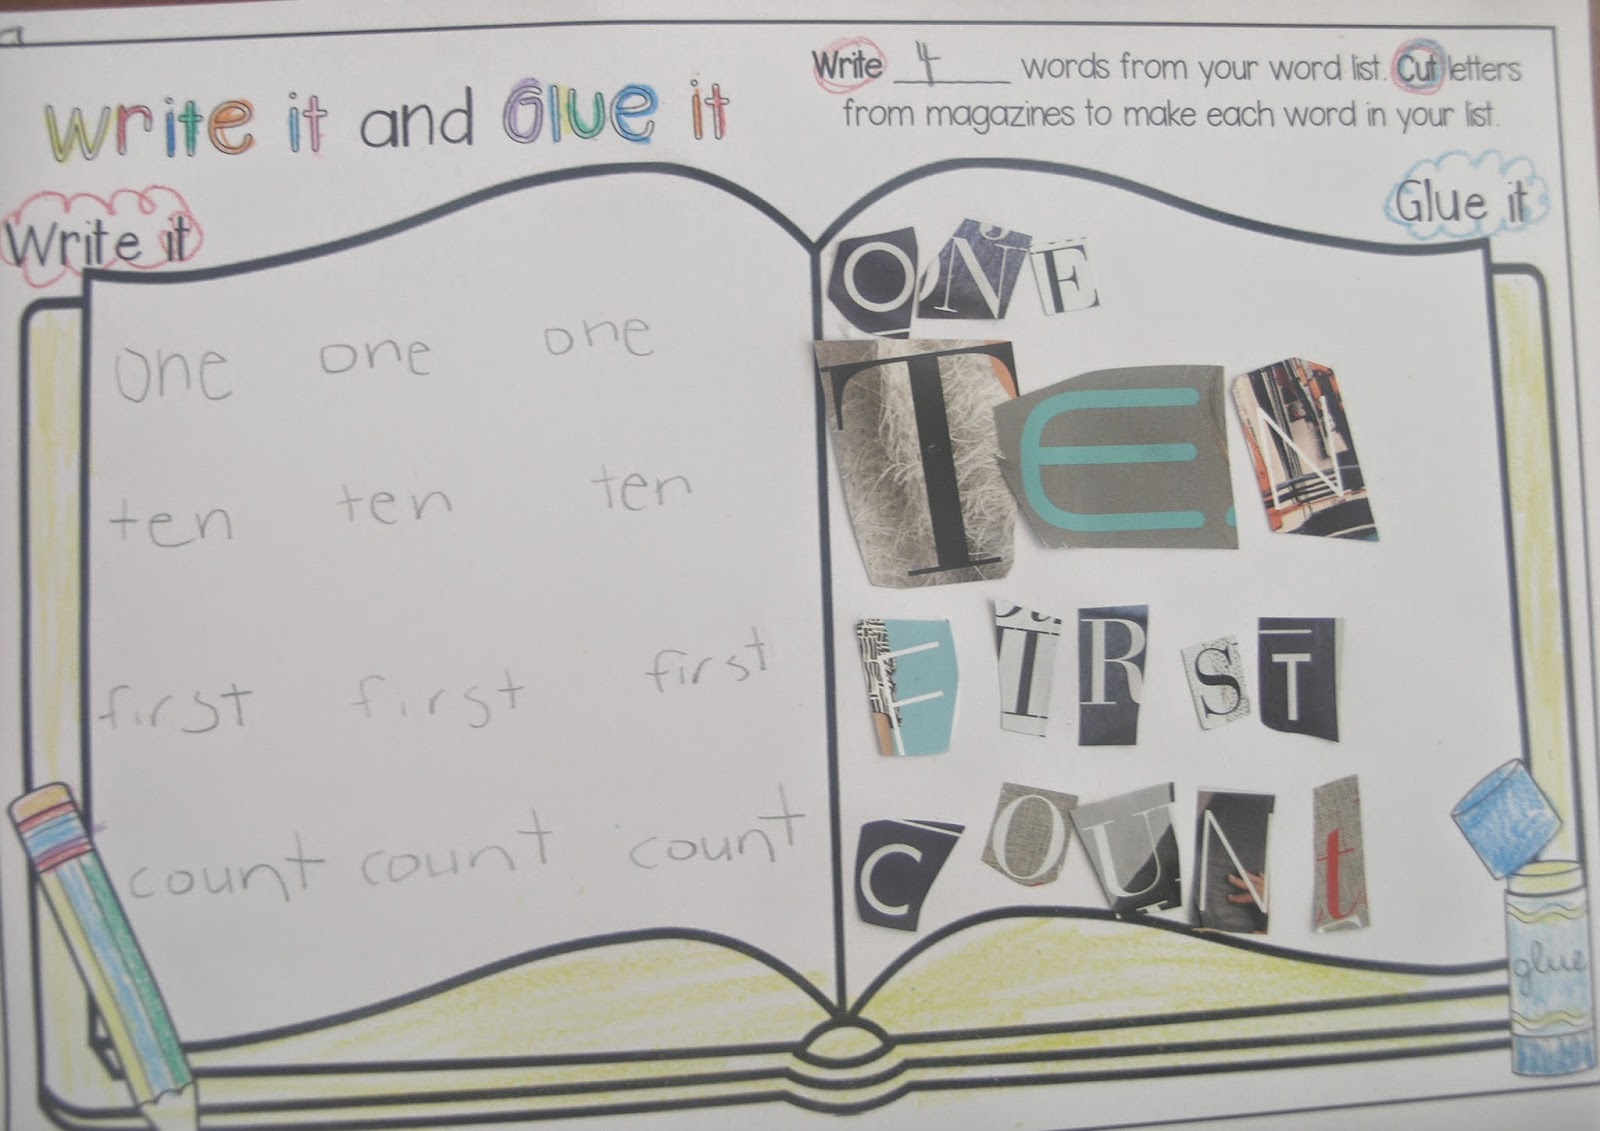 Write 4 words from your word list. Cut letters
from magazines to make each word in your list.
write it and Glue it
Write it
Glue it
one one one
ten ten ten
first first first
count count count
ONE
TEN
FIRST
COUNt
glue